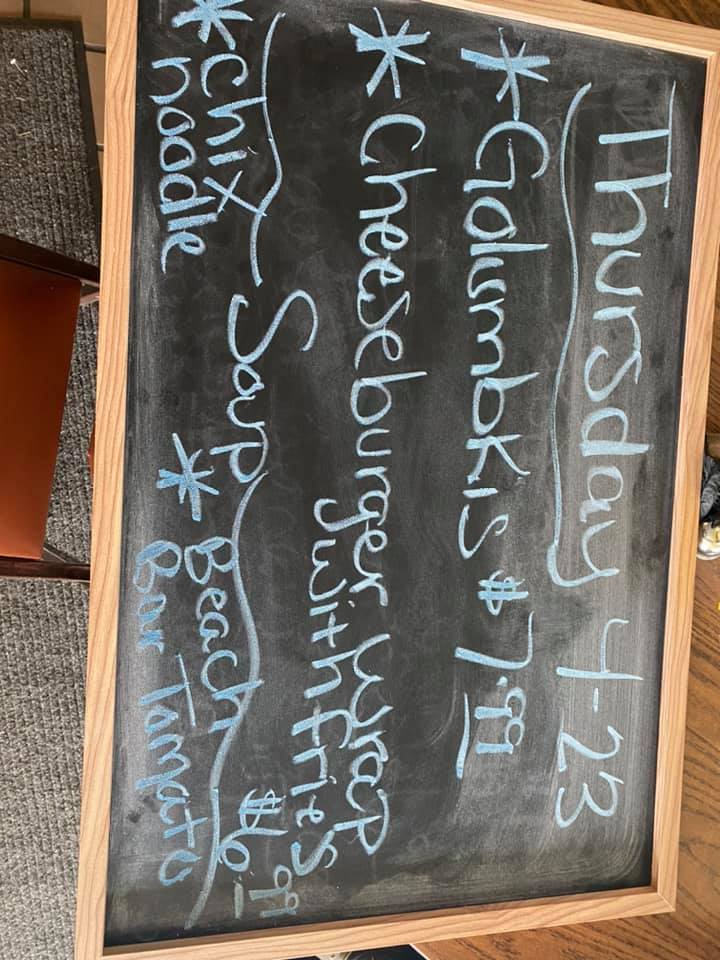 Thursday 4-23
* Galumbkis $7.99
* Cheeseburger Wrap
with fries $6.99
Soup
* Chix noodle
* Beach Bar Tomato